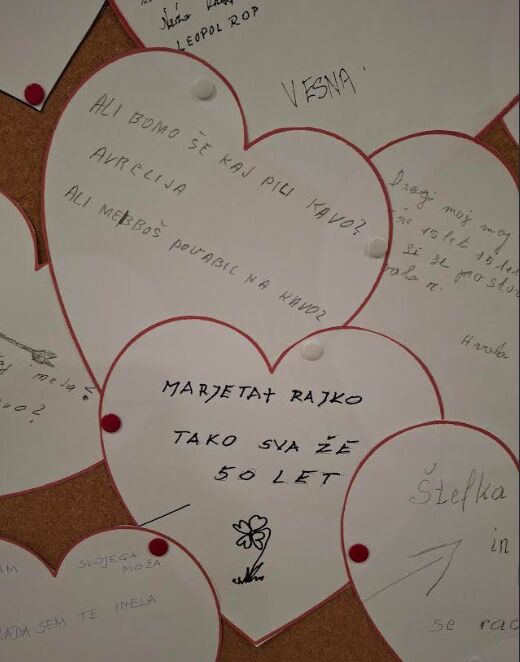 LEOPOL ROP
VESNA
ALI BOMO ŠE KAJ PILI KAVO?
AVRELIJA
ALI ME BOŠ POVABIL NA KAVO?
Dragi moj moj
15 let 15 let
si se
MARJETA+ RAJKO
TAKO SVA ŽE
50 LET
Štefka
in
se rad
SVOJEGA
MOŽA
RADA SEM TE IMELA